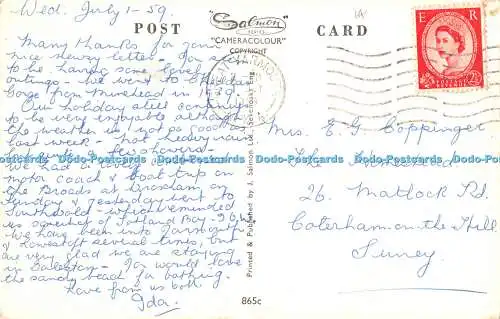 Wed. July 1-59.
POST
"Salmon"
"CAMERACOLOUR"
COPYRIGHT
CARD
E R
POSTAGE REVENUE
2½D
Many thanks for your
nice newsy letter - So
to be having some lovely
outings - we went to
Gorge from Minehead in 1939.
Our holiday still continues
to be very enjoyable although
the weather is not as good as
last week - not heavy rain
We had a lovely
motor coach & boat trip on
the Broads at Wroxham on
Sunday & yesterday went to
Southwold - which reminded
us somewhat of Totland Bay - 96
We have been into Yarmouth
& Lowestoft several times, but
are very glad we are staying
in Gorleston - Jo would love
the sandy beach for bathing.
Love from us both
Ida.
Printed & Published by J. Salmon Ltd., Sevenoaks, Eng.
865c
Mrs. E. G. Coppinger
The
26 Matlock Rd.
Caterham-on-the-Hill
Surrey.
www.delcampe.net Postcard-Finder